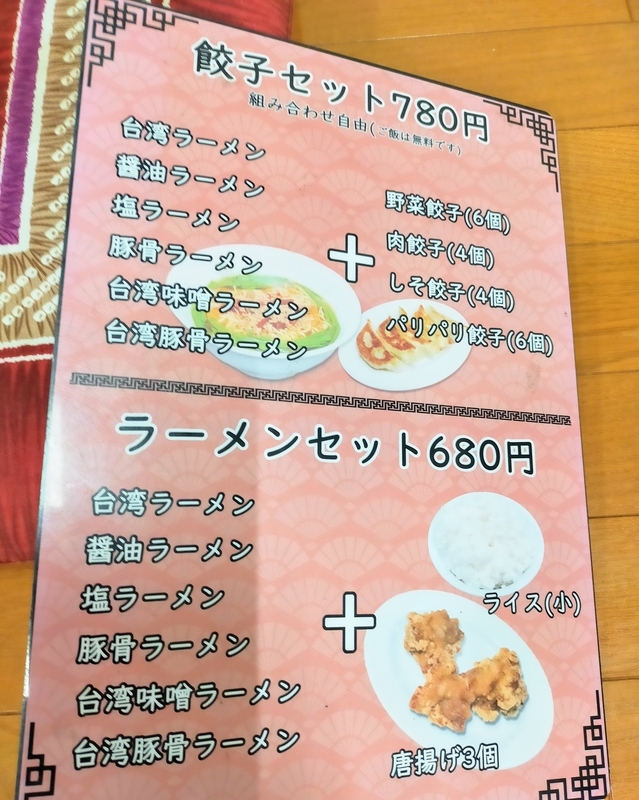 餃子セット780円
組み合わせ自由(ご飯は無料です)
台湾ラーメン
醤油ラーメン
塩ラーメン
豚骨ラーメン
台湾味噌ラーメン
台湾豚骨ラーメン
+
野菜餃子(6個)
肉餃子(4個)
しそ餃子(4個)
パリパリ餃子(6個)
ラーメンセット680円
台湾ラーメン
醤油ラーメン
塩ラーメン
豚骨ラーメン
台湾味噌ラーメン
台湾豚骨ラーメン
+
ライス(小)
唐揚げ3個